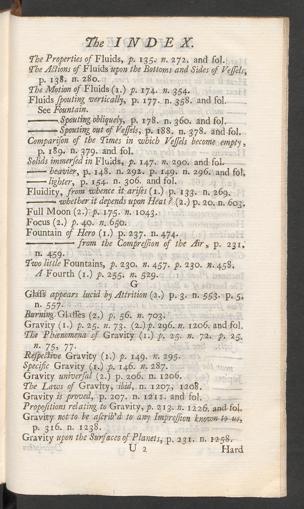 The INDEX.
The Properties of Fluids, p. 135. n. 272. and fol.
The Actions of Fluids upon the Bottoms and Sides of Vessels,
p. 138. n. 280.
The Motion of Fluids (1.) p. 174. n. 354.
Fluids spouting vertically, p. 177. n. 358. and fol.
See Fountain.
——— Spouting obliquely, p. 178. n. 360. and fol.
——— Spouting out of Vessels, p. 188. n. 378. and fol.
Comparison of the Times in which Vessels become empty,
p. 189. n. 379. and fol.
Solids immersed in Fluids, p. 147. n. 290. and fol.
——— heavier, p. 148. n. 292. p. 149. n. 296. and fol.
——— lighter, p. 154. n. 306. and fol.
Fluidity, from whence it arises (1.) p. 133. n. 269.
——— whether it depends upon Heat? (2.) p. 20. n. 603.
Full Moon (2.) p. 175. n. 1043.
Focus (2.) p. 40. n. 650.
Fountain of Hero (1.) p. 237. n. 474.
——— from the Compression of the Air, p. 231.
n. 459.
Two little Fountains, p. 230. n. 457. p. 230. n. 458.
A Fourth (1.) p. 255. n. 529.
G
Glass appears lucid by Attrition (2.) p. 3. n. 553. p. 5.
n. 557.
Burning Glasses (2.) p. 56. n. 703.
Gravity (1.) p. 25. n. 73. (2.) p. 296. n. 1206. and fol.
The Phænomena of Gravity (1.) p. 25. n. 72. p. 25.
n. 75, 77.
Respective Gravity (1.) p. 149. n. 295.
Specific Gravity (1.) p. 146. n. 287.
Gravity universal (2.) p. 206. n. 1206.
The Laws of Gravity, ibid, n. 1207, 1208.
Gravity is proved, p. 207. n. 1211. and fol.
Propositions relating to Gravity, p. 213. n. 1226. and fol.
Gravity not to be ascrib'd to any Impression known to us,
p. 316. n. 1238.
Gravity upon the Surfaces of Planets, p. 231. n. 1258.
U 2 Hard